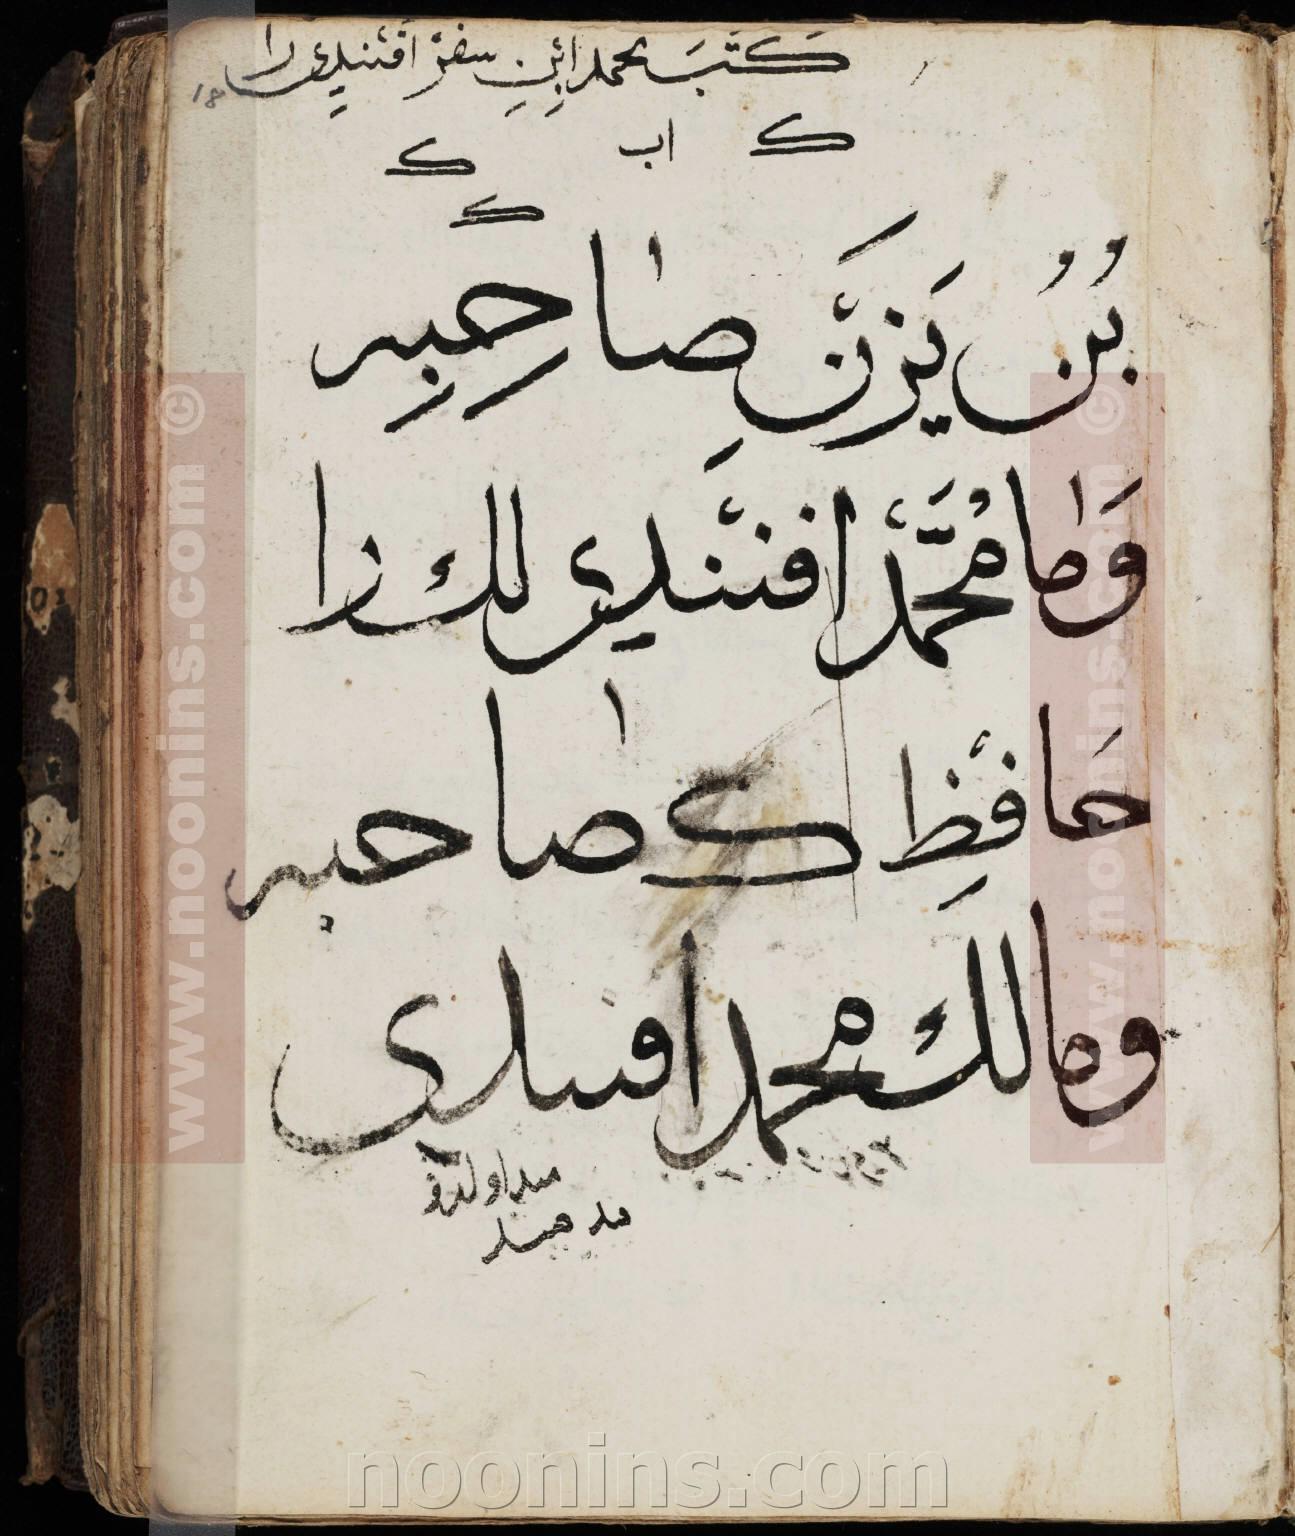 كَتَبَ محمد اِبْنِ سفر افَنْدِى را
18
ك اب ك
ك
بُنُ يَزَنَّ صاحِبِه
وَما مُحَمَّدْ افنْدى لك را
حَافْظِ ك صاحبه
ومالك محمد افندى
www.noonins.com ©
www.noonins.com ©
noonins.com